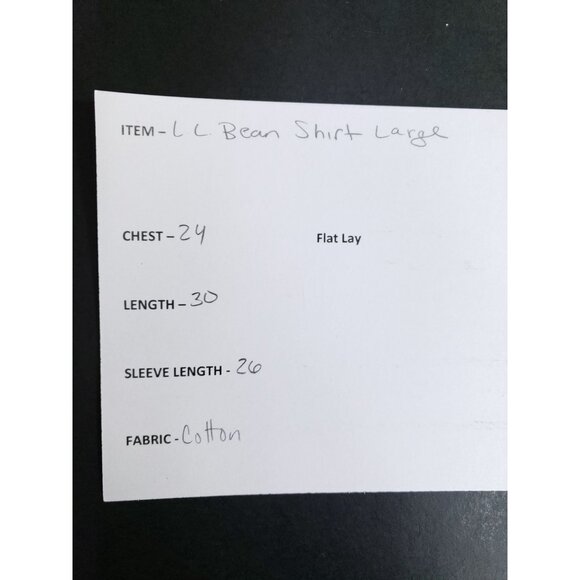 ITEM – L L. Bean Shirt Large
CHEST – 24 Flat Lay
LENGTH – 30
SLEEVE LENGTH - 26
FABRIC - Cotton